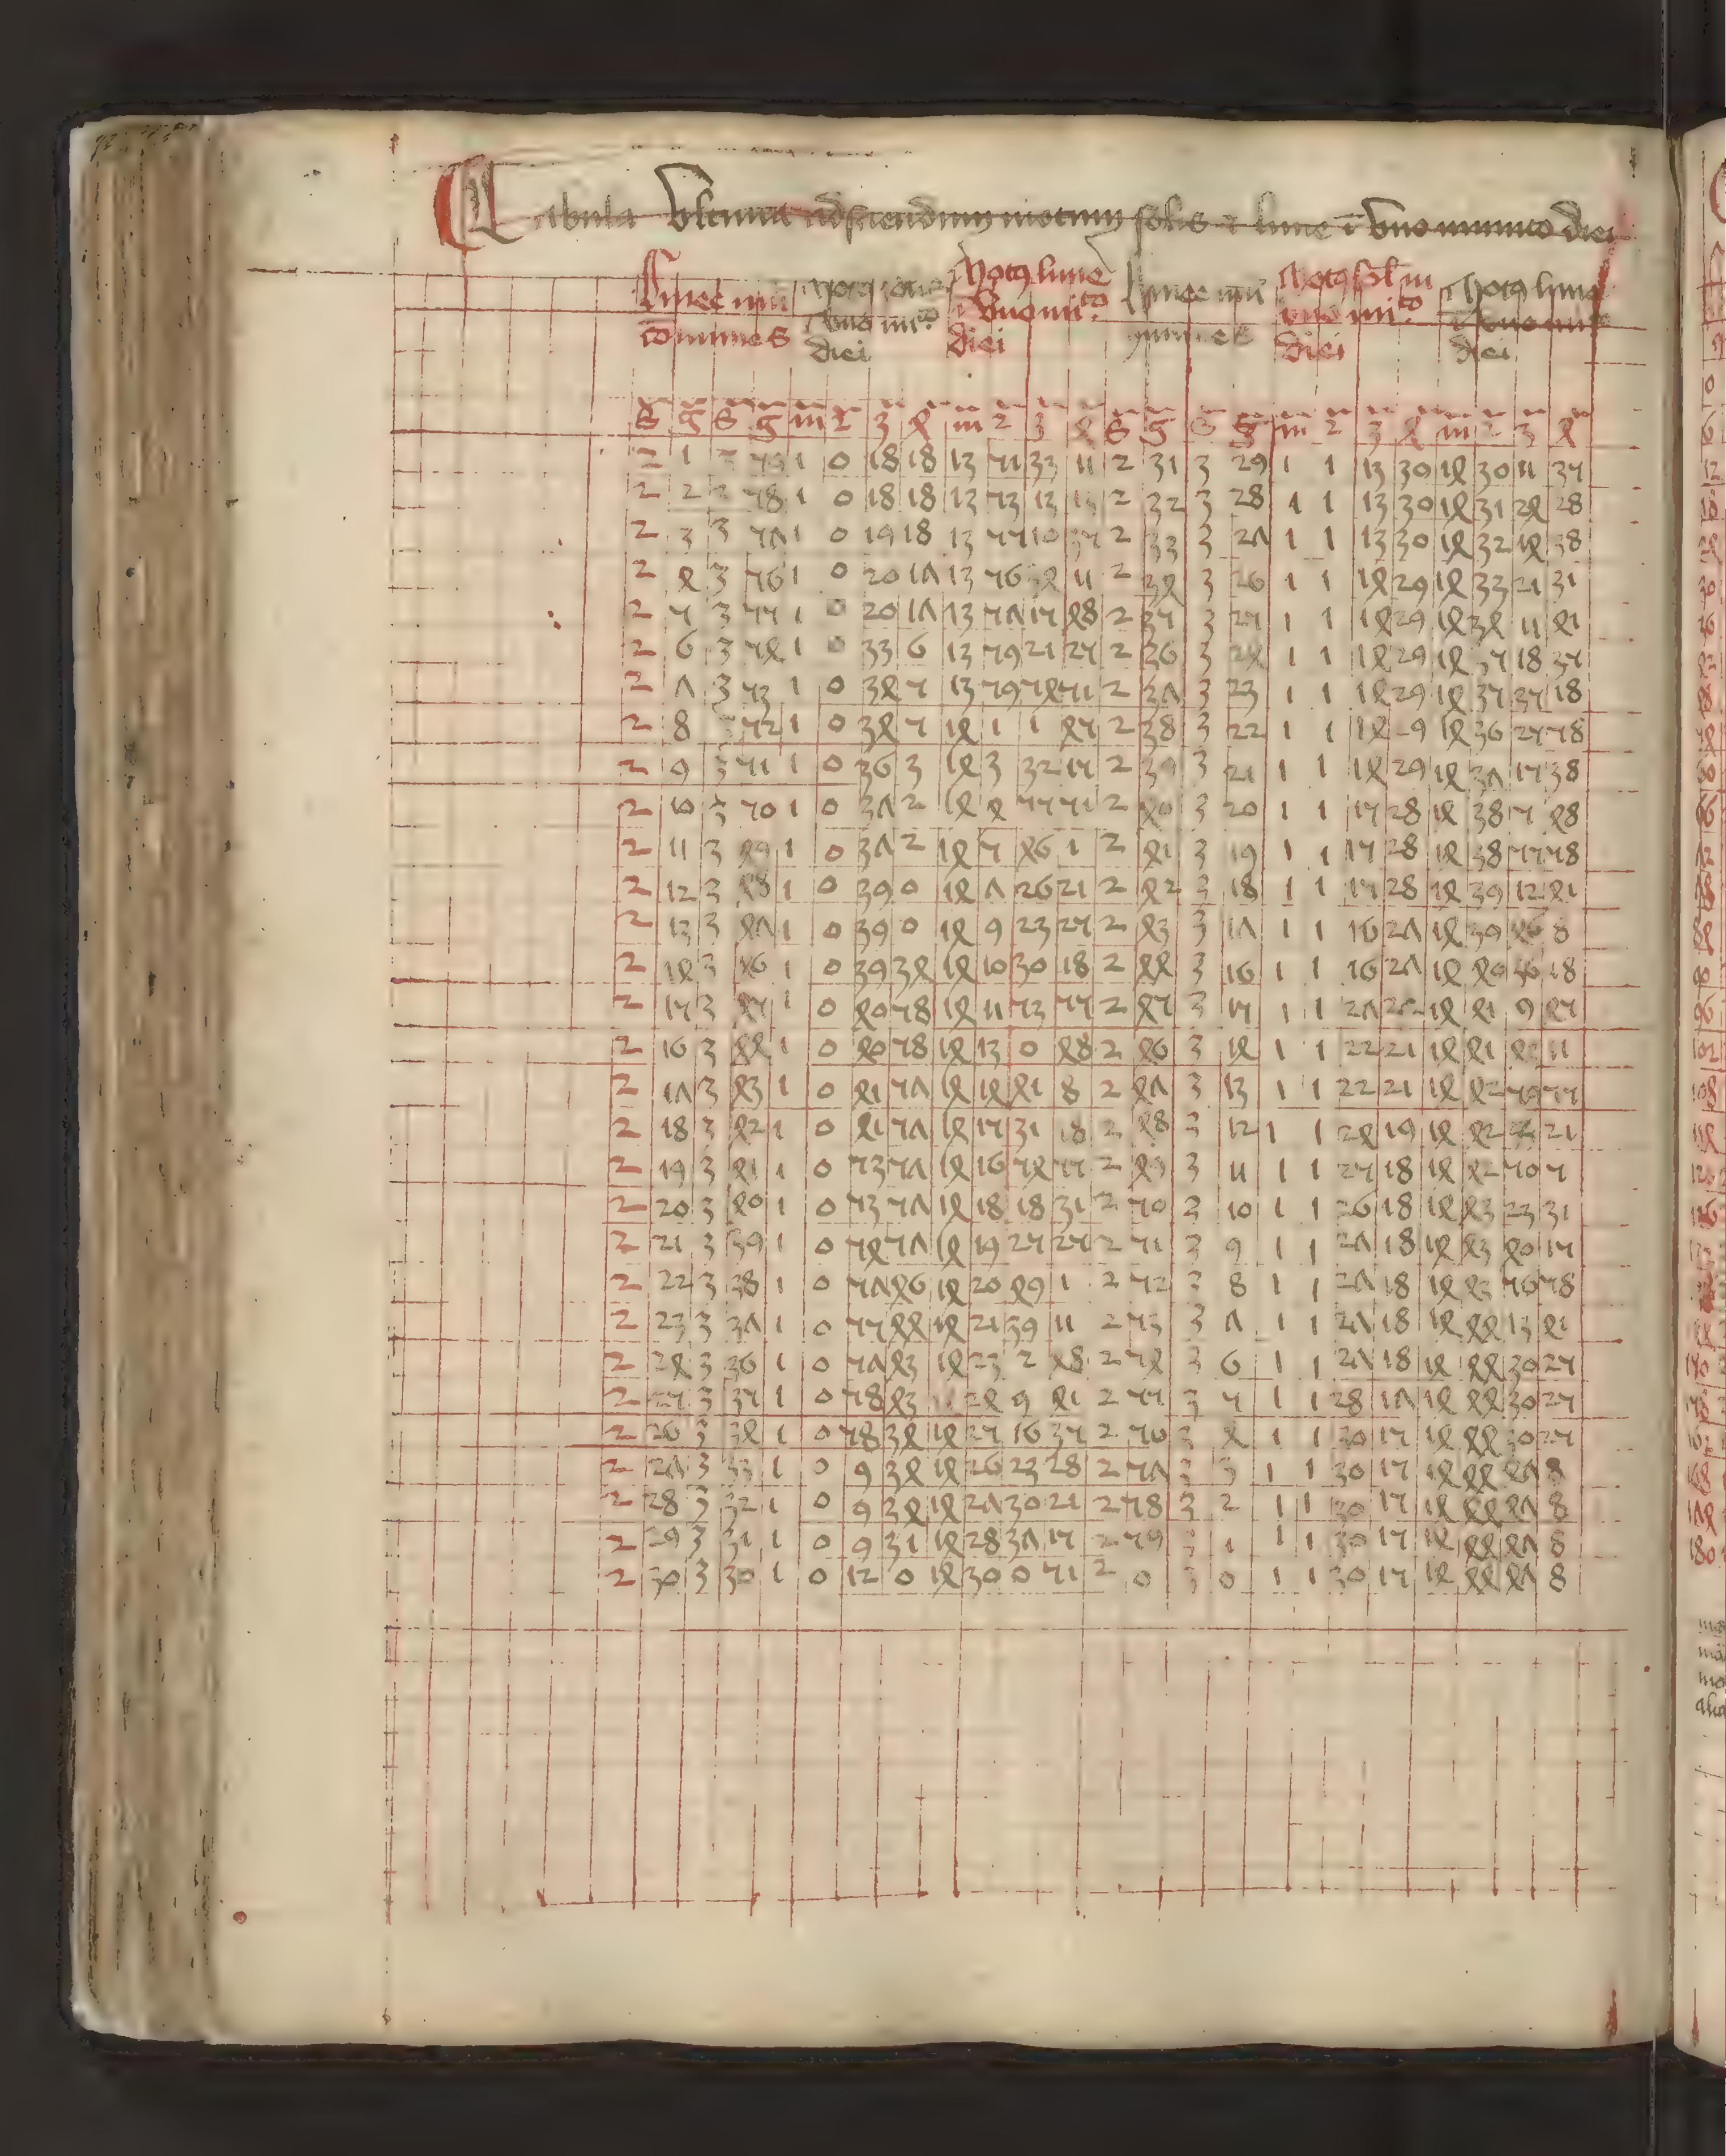 Tabula Vltima ad sciendum motum solis et lune in vno minuto diei
Linee nũi Motus solis Motus lune Linee nũi Motus sol in Motus lune
cõmunes vno mi.to vno mi.to vno mi.to vno mi
diei diei diei diei
S g S g m 2 3 4 m 2 3 4 S g S g m 2 3 4 m 2 3 4
2 1 1 0 18 18 13 51 33 11 2 31 3 29 1 1 13 30 14 30 11 35
2 2 58 1 0 18 18 13 53 13 2 32 3 28 1 1 13 30 14 31 24 28
2 3 3 57 1 0 19 18 13 55 10 2 33 3 27 1 1 13 30 14 32 14 38
2 4 3 56 1 0 20 17 13 56 34 11 2 34 3 26 1 1 14 29 14 33 21 31
2 5 3 55 1 0 20 17 13 57 15 48 2 35 3 25 1 1 14 29 14 34 11 41
2 6 3 54 1 0 33 6 13 59 21 25 2 36 3 24 1 1 14 29 14 35 18 35
2 7 3 53 1 0 34 5 13 59 54 51 2 37 3 23 1 1 14 29 14 35 35 18
2 8 52 1 0 34 5 14 1 1 45 2 38 3 22 1 1 14 29 14 36 25 58
2 9 3 51 1 0 36 3 14 3 32 15 2 39 3 21 1 1 14 29 14 37 15 38
2 10 3 50 1 0 37 2 14 4 55 51 2 40 3 20 1 1 15 28 14 38 5 48
2 11 3 49 1 0 37 2 14 5 46 1 2 41 3 19 1 1 15 28 14 38 55 58
2 12 3 48 1 0 39 0 14 7 26 21 2 42 3 18 1 1 15 28 14 39 12 41
2 13 3 47 1 0 39 0 14 9 23 25 2 43 3 17 1 1 16 27 14 39 46 8
2 14 3 46 1 0 39 34 14 10 30 18 2 44 3 16 1 1 16 27 14 40 18
2 15 3 45 1 0 40 58 14 11 53 55 2 45 3 15 1 1 27 22 14 41 9 45
2 16 3 44 1 0 40 58 14 13 0 48 2 46 3 14 1 1 22 21 14 41 11
2 17 3 43 1 0 41 57 14 14 41 8 2 47 3 13 1 1 22 21 14 42 59 55
2 18 3 42 1 0 41 57 14 15 31 18 2 48 3 12 1 1 24 19 14 42 21
2 19 3 41 1 0 53 57 14 16 54 55 2 49 3 11 1 1 25 18 14 42 50 5
2 20 3 40 1 0 53 57 14 18 18 31 2 50 3 10 1 1 26 18 14 43 23 31
2 21 3 39 1 0 54 57 14 19 25 25 2 51 3 9 1 1 27 18 14 43 40 15
2 22 3 38 1 0 57 46 14 20 49 1 2 52 3 8 1 1 27 18 14 43 56 58
2 23 3 37 1 0 55 44 14 21 39 11 2 53 3 7 1 1 27 18 14 44 13 41
2 24 3 36 1 0 57 43 14 23 2 48 2 54 3 6 1 1 27 18 14 44 30 25
2 25 3 35 1 0 58 43 24 9 41 2 55 3 5 1 1 28 17 14 44 30 25
2 26 3 34 1 0 58 34 14 25 16 35 2 56 3 4 1 1 30 15 14 44 30 25
2 27 3 33 1 0 9 34 14 26 23 28 2 57 3 3 1 1 30 15 14 44 47 8
2 28 3 32 1 0 9 34 14 27 30 21 2 58 3 2 1 1 30 15 14 44 47 8
2 29 3 31 1 0 9 31 14 28 37 15 2 59 3 1 1 1 30 15 14 44 47 8
2 30 3 30 1 0 12 0 14 30 0 51 2 0 3 0 1 1 30 15 14 44 47 8